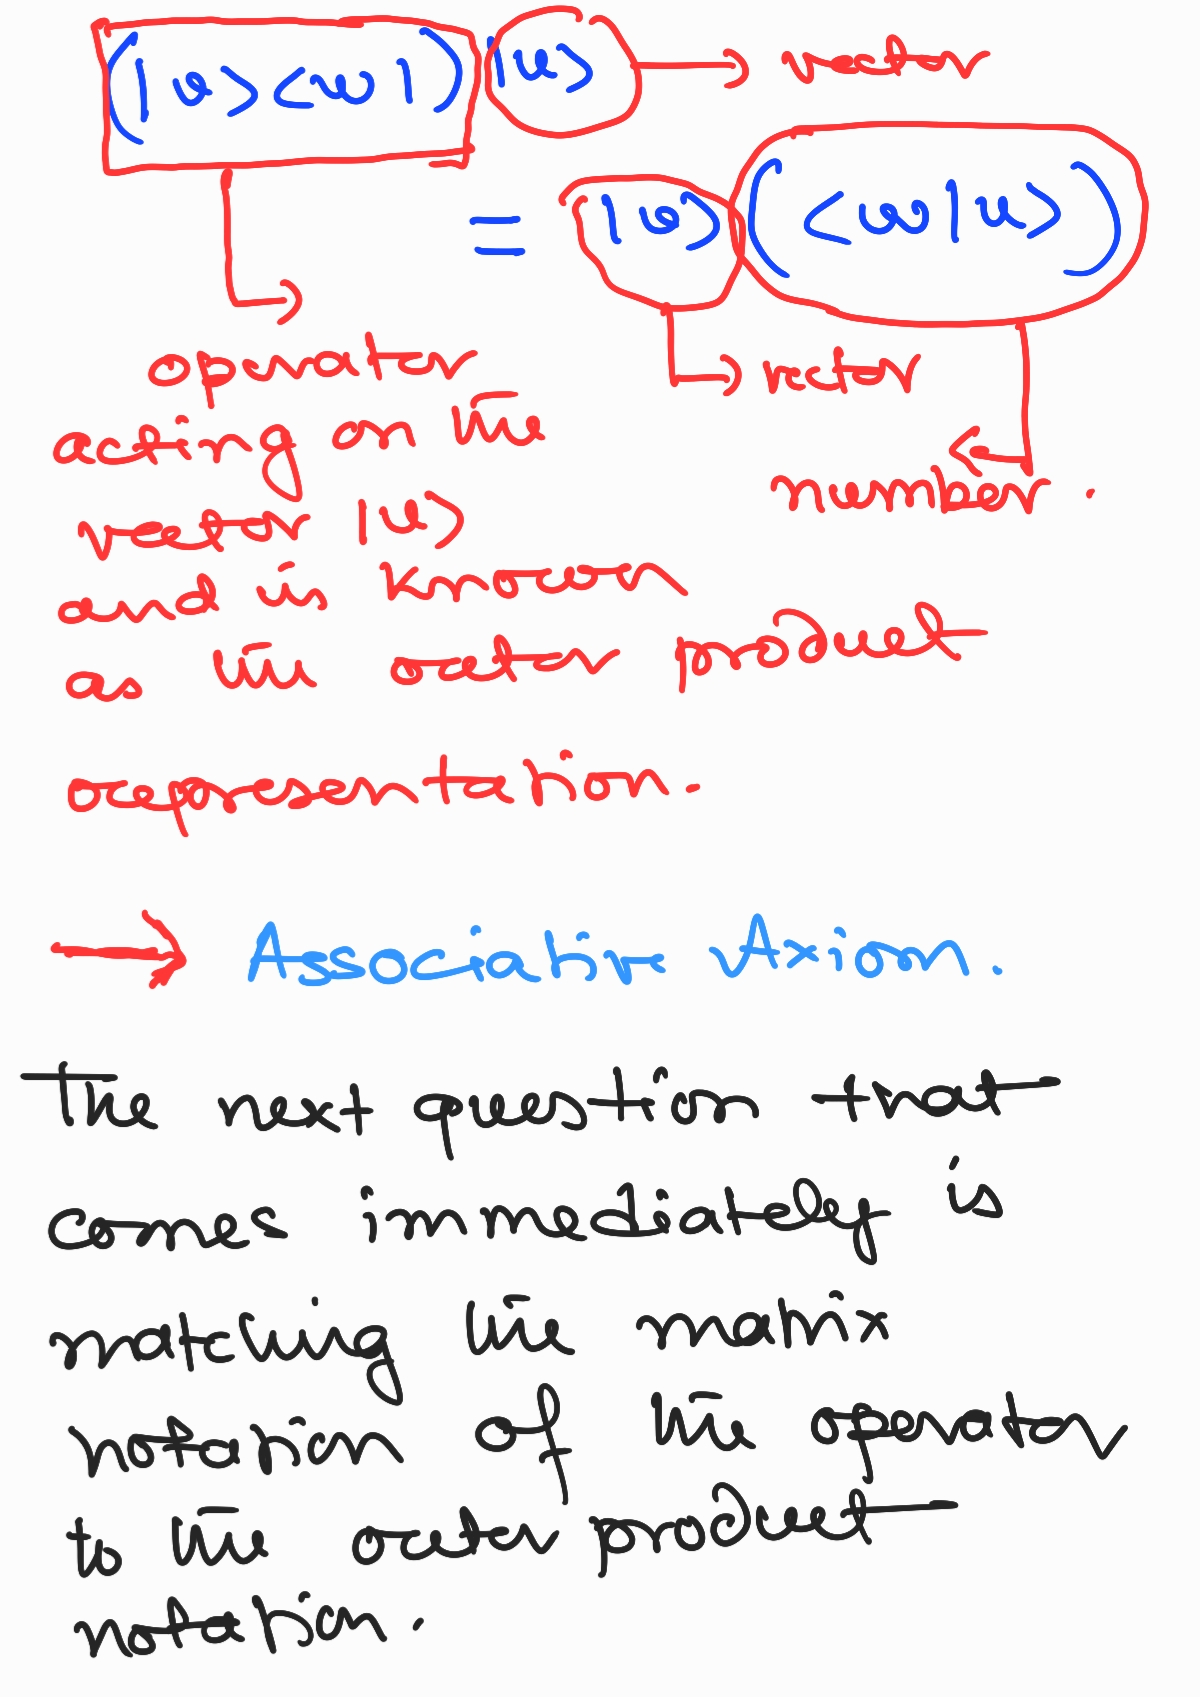 (|v><w|) |u> → vector
= |v> (<w|u>)
operator
→ vector
acting on the
number.
vector |u>
and is known
as the outer product
representation.
→ Associative Axiom.
The next question that
comes immediately is
matching the matrix
notation of the operator
to the outer product
notation.